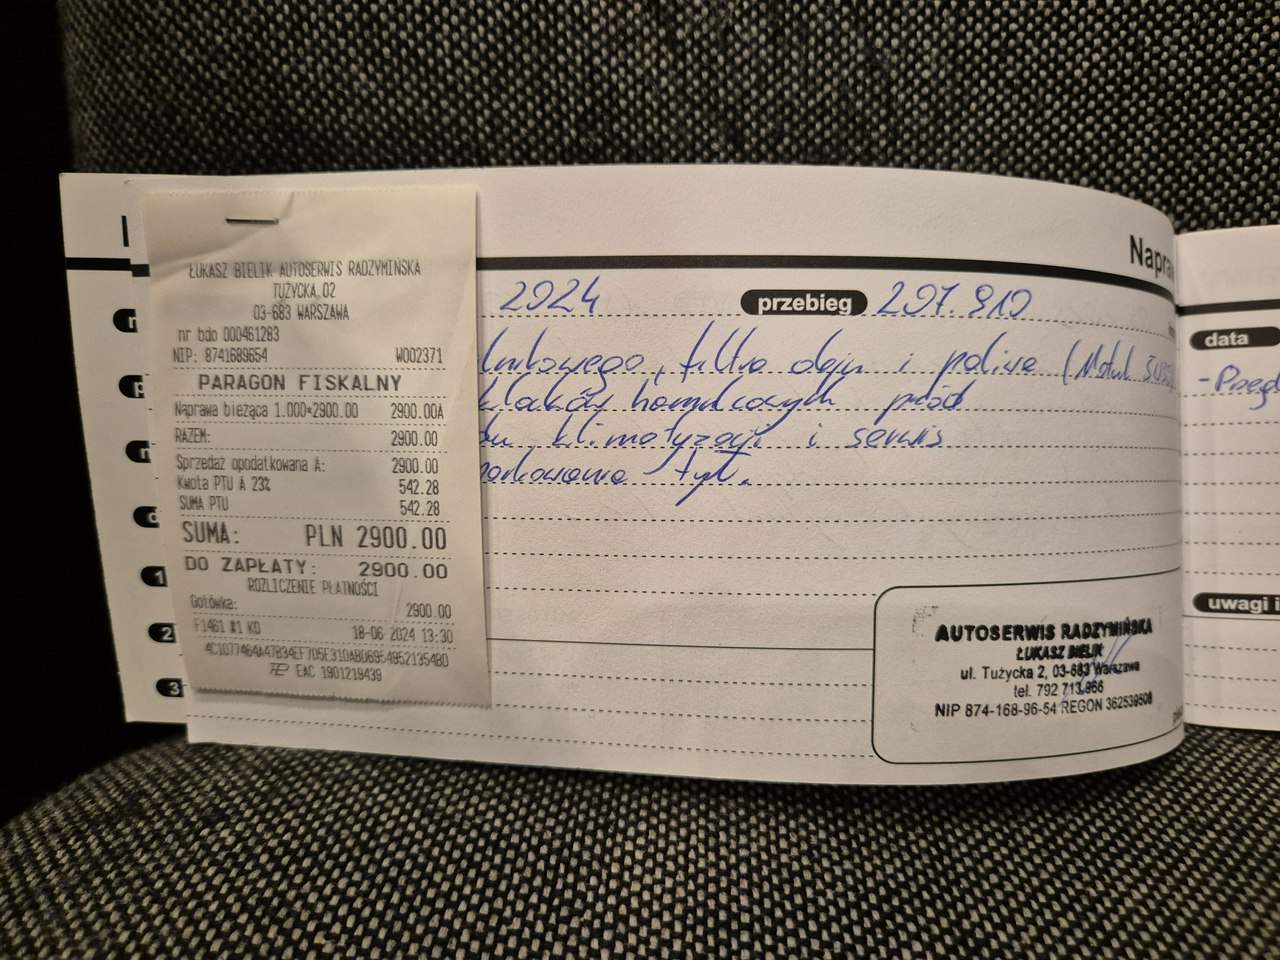 ŁUKASZ BIELIK AUTOSERWIS RADZYMIŃSKA
TUŻYCKA 02
03-683 WARSZAWA
nr bdo 000461283
NIP: 8741689654 W002371
PARAGON FISKALNY
Naprawa bieżąca 1.000*2900.00 2900.00A
RAZEM: 2900.00
Sprzedaż opodatkowana A: 2900.00
Kwota PTU A 23% 542.28
SUMA PTU 542.28
SUMA: PLN 2900.00
DO ZAPŁATY: 2900.00
ROZLICZENIE PŁATNOŚCI
Gotówka: 2900.00
F1461 #1 KO 18-06 2024 13:30
EAC 1901219439
1
2
3
Napra
2024 przebieg 207.910
filtra oleju i paliwa (Motul
hamulcowych przód
klimatyzacji i serwis
tył.
AUTOSERWIS RADZYMIŃSKA
ŁUKASZ BIELIK
ul. Tużycka 2, 03-683 Warszawa
tel. 792 713 966
NIP 874-168-96-54 REGON 362539508
data
uwagi i